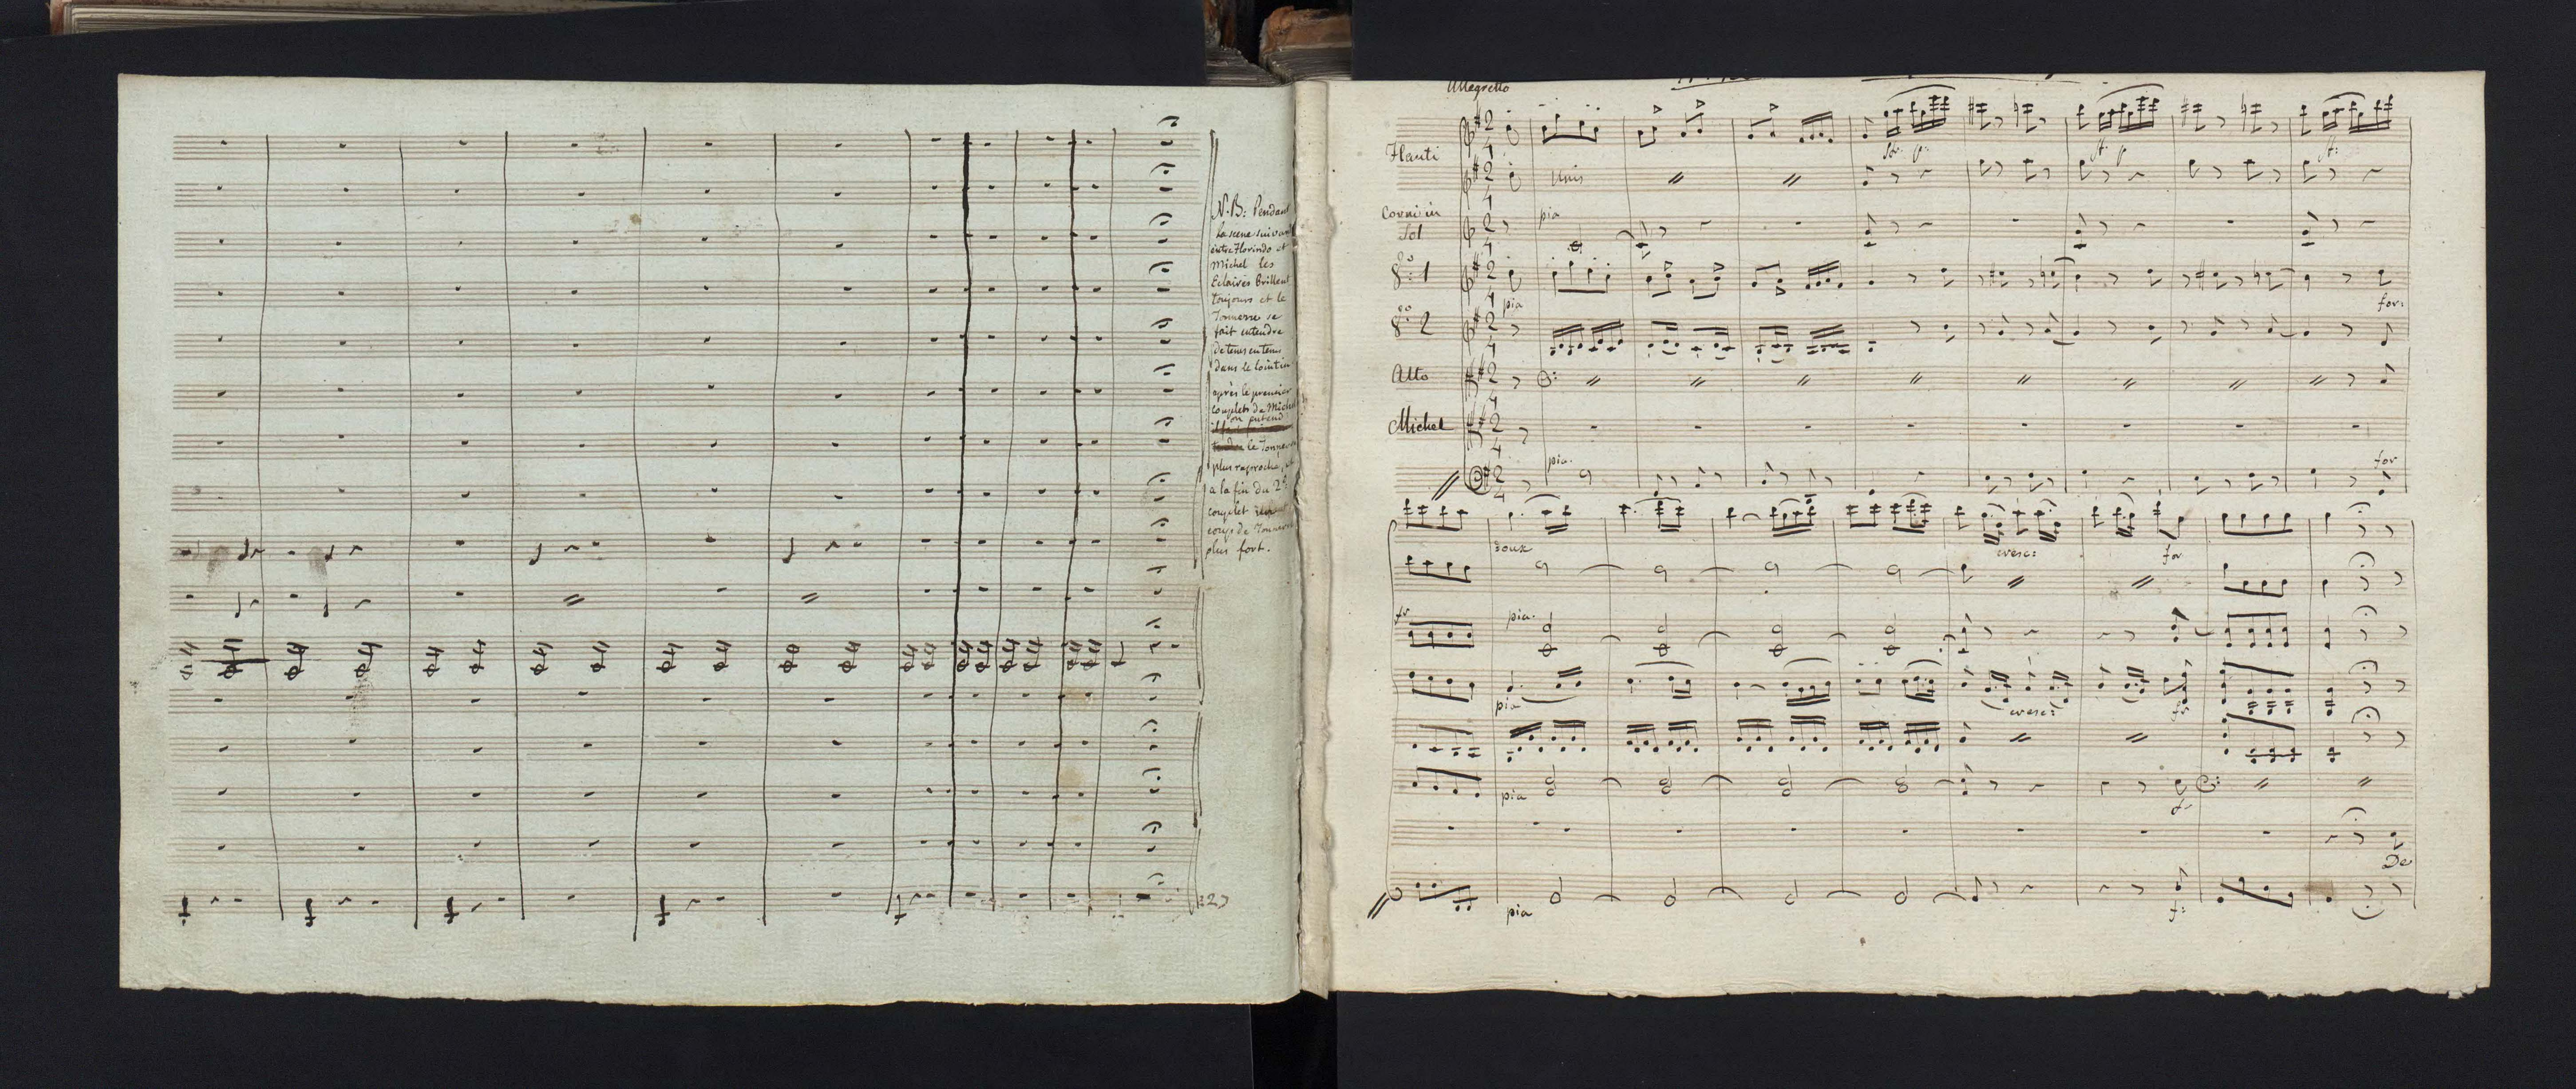 N.B: Pendant
la scene suivan
entre Florindo et
Michel les
Eclaires Brillent
Toujours et le
Tonnerre se
fait entendre
de tems en tems
dans le lointin
après le premier
couplet de Michel
on entend
le Tonner
plus raproche, et
a la fin du 2d
couplet un
coup de Tonnerre
plus fort.
123
Allegretto
Flauti
Unis
Corni in
Sol
pia
1
pia
for:
2
Alto
Michel
pia.
for
doux
cresc:
for
fr
pia.
pia
cresc:
fr
pia
fr
De
pia
f: